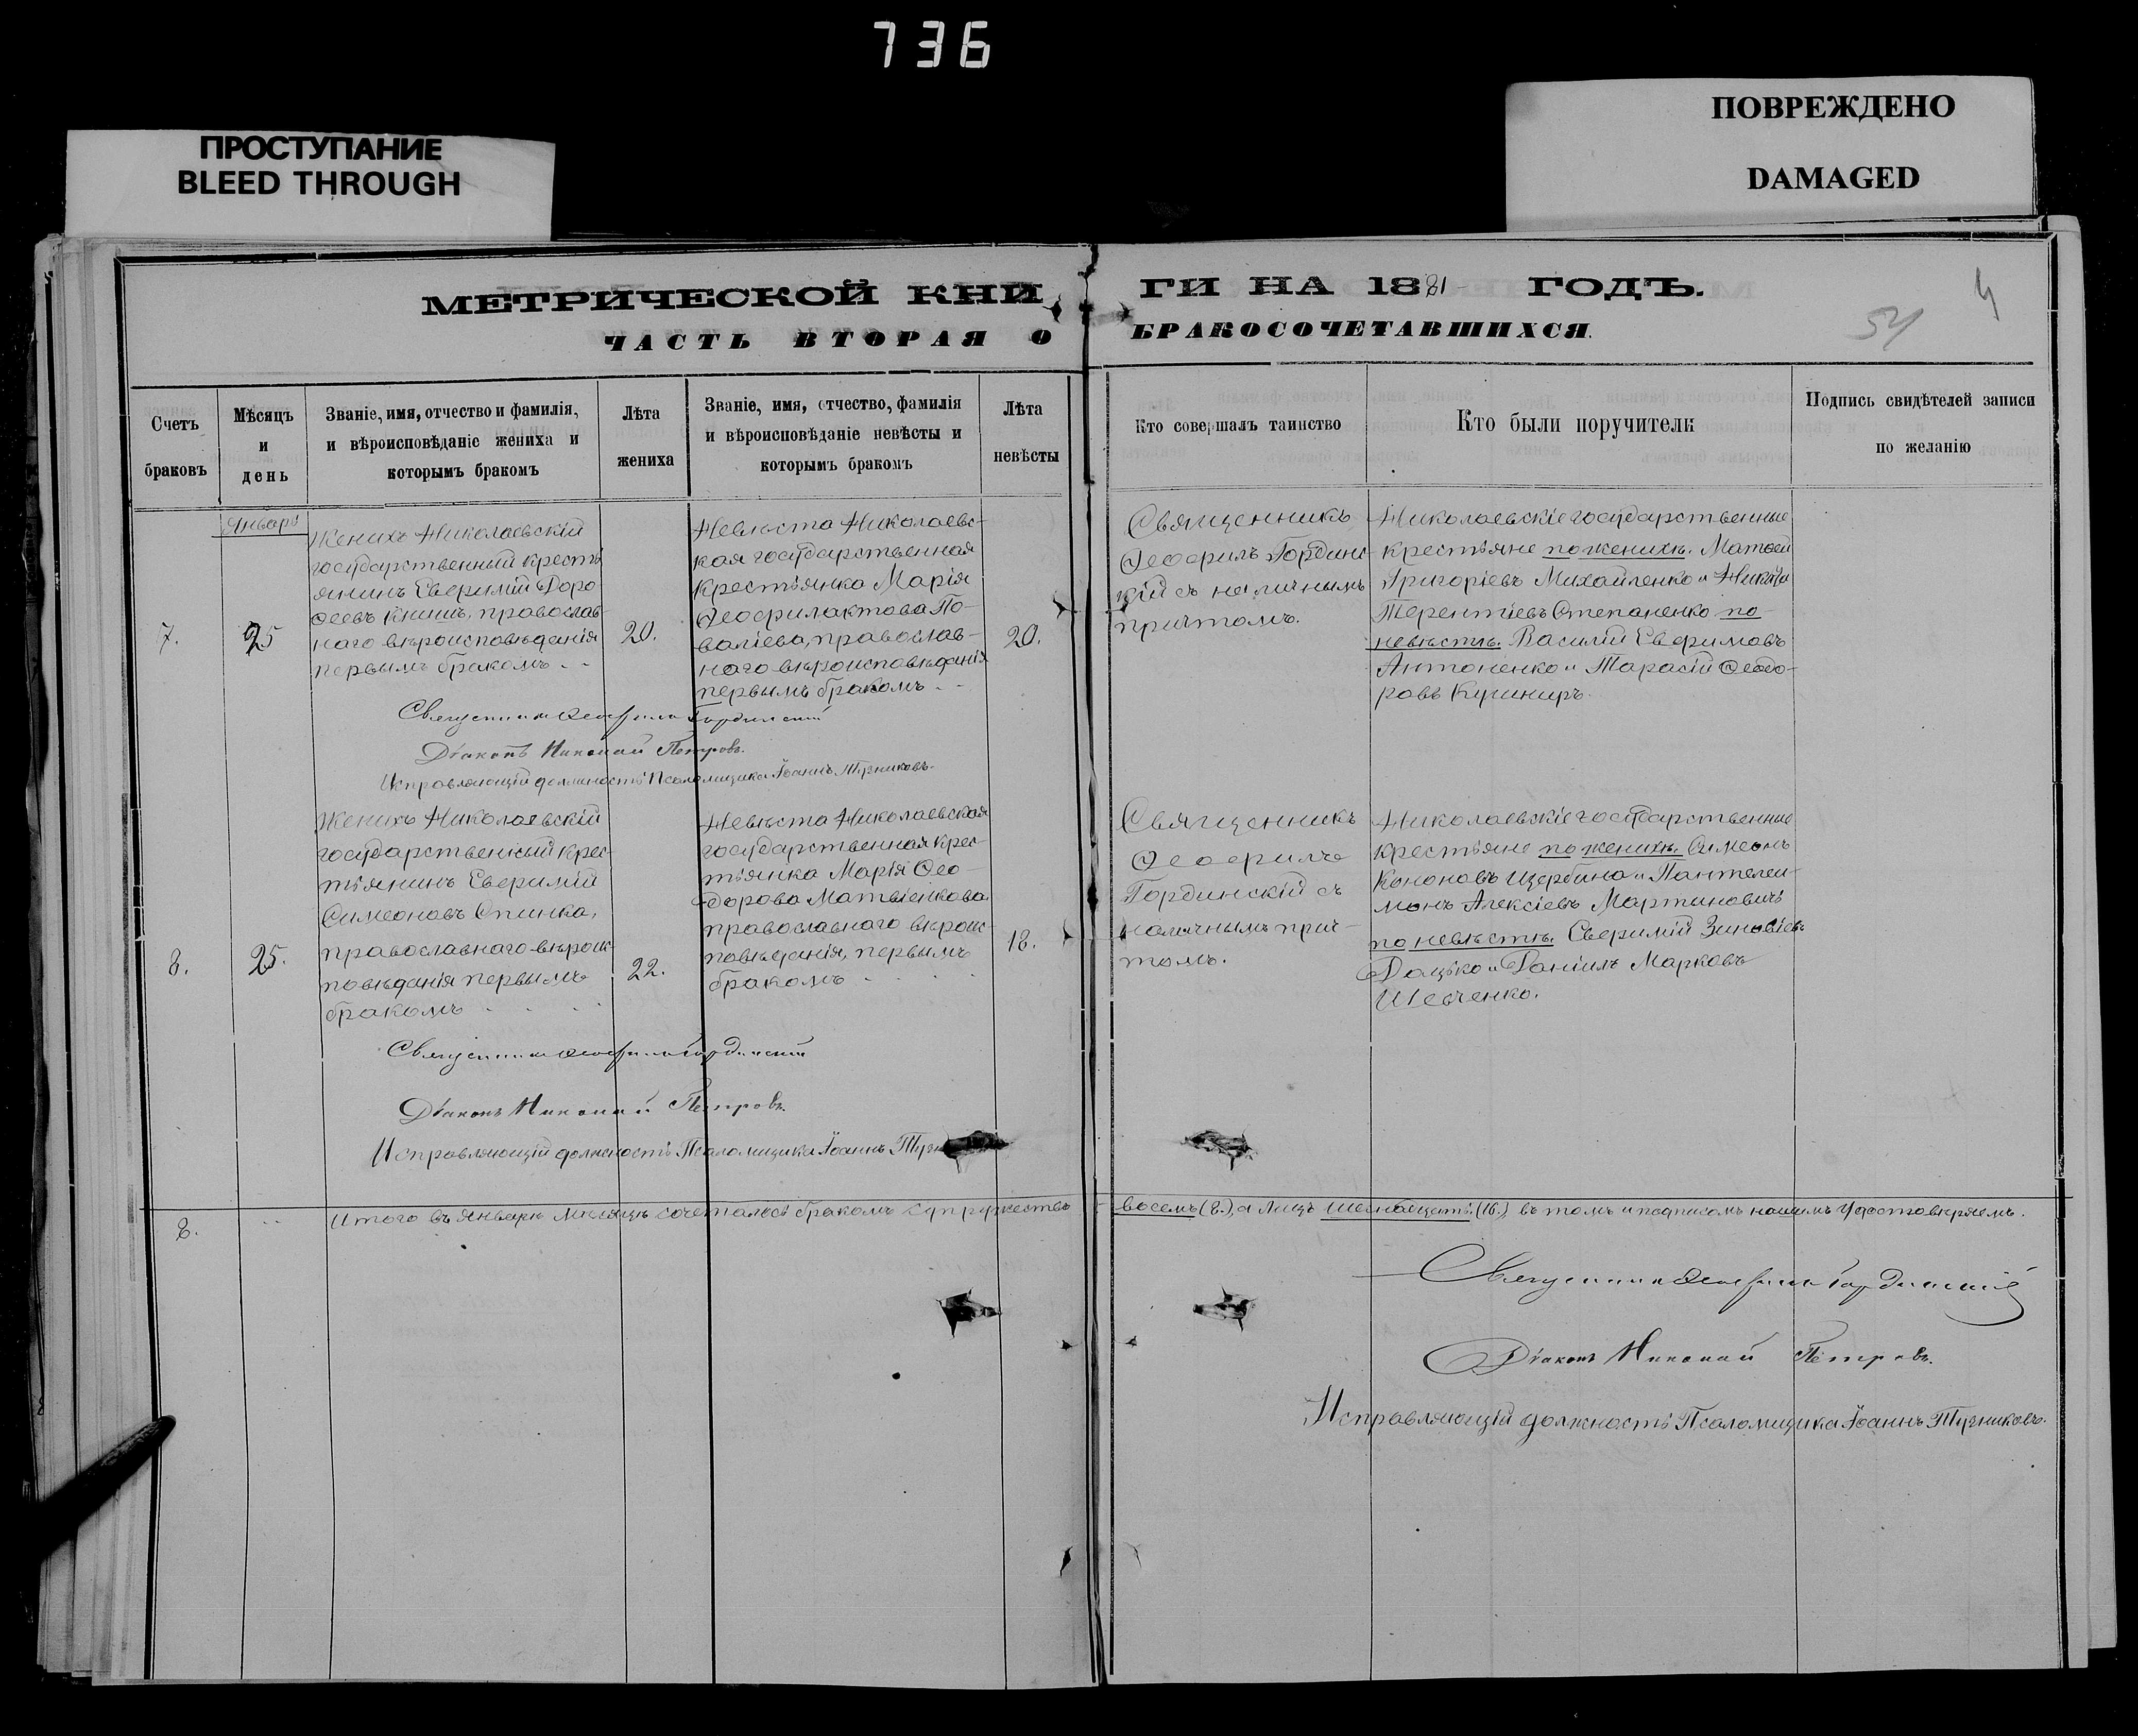 736
ПРОСТУПАНИЕ
BLEED THROUGH
ПОВРЕЖДЕНО
DAMAGED
МЕТРИЧЕСКОЙ КНИ ГИ НА 1881 ГОДЪ.
ЧАСТЬ ВТОРАЯ О БРАКОСОЧЕТАВШИХСЯ.
54
4
Счетъ
браковъ
Мѣсяцъ
и
день
Званіе, имя, отчество и фамилія,
и вѣроисповѣданіе жениха и
которымъ бракомъ
Лѣта
жениха
Званіе, имя, отчество, фамилія
и вѣроисповѣданіе невѣсты и
которымъ бракомъ
Лѣта
невѣсты
Кто совершалъ таинство
Кто были поручители
Подпись свидѣтелей записи
по желанію
Январь
7.
25
Женихъ Николаевскій
государственный кресть
янинъ Евфимій Доро
ѳеевъ Книшъ, православ
наго вѣроисповѣданія
первымъ бракомъ
20.
Невѣста Николаевс-
кая государственная
крестьянка Марія
Ѳеофилактова По-
валіева, православ-
наго вѣроисповѣданія
первымъ бракомъ
20.
Священникъ
Ѳеофилъ Гординс-
кій съ наличнымъ
причтомъ.
Николаевскіе государственные
крестьяне по женихѣ. Матѳей
Григоріевъ Михайленко и Никита
Терентіевъ Степаненко по
невѣстѣ. Василій Евфимовъ
Антоненко и Тарасій Ѳеодо-
ровъ Кушниръ.
Священникъ Ѳеофилъ Гординскій
Діаконъ Николай Петровъ.
Исправляющій должность Псаломщика Іоаннъ Тузниковъ.
8.
25.
Женихъ Николаевскій
государственный крес-
тьянинъ Евфимій
Симеоновъ Спинка,
православнаго вѣроис-
повѣданія первымъ
бракомъ
22.
Невѣста Николаевская
государственная крес-
тьянка Марія Ѳео-
дорова Матвіенкова
православнаго вѣроис-
повѣданія, первымъ
бракомъ
18.
Священникъ
Ѳеофилъ
Гординскій съ
наличнымъ прич-
томъ.
Николаевскіе государственные
крестьяне по женихѣ. Симеонъ
Кононовъ Щербина и Пантелеи-
монъ Алексіевъ Мартиновичъ
по невѣстѣ. Евфимій Зиновіевъ
Дацько и Даніилъ Марковъ
Шевченко.
Священникъ Ѳеофилъ Гординскій
Діаконъ Николай Петровъ.
Исправляющій должность Псаломщика Іоаннъ
8.
Итого въ Январѣ мѣсяцѣ сочеталось бракомъ супружествъ восемь (8.), а лицъ шестнадцать (16.) въ томъ и подписомъ нашимъ удостовѣряемъ.
Священникъ Ѳеофилъ Гординскій
Діаконъ Николай Петровъ.
Исправляющій должность Псаломщика Іоаннъ Тузниковъ.